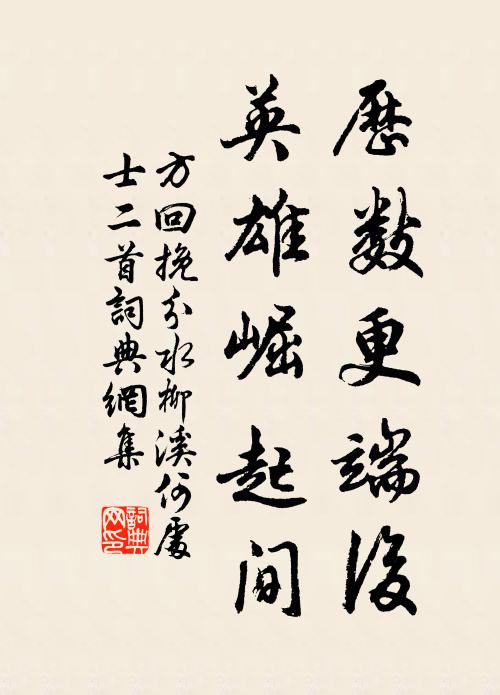 歷數更端後
英雄崛起間
方回挽分水柳溪何處
士二首詞典網集
詞典網印